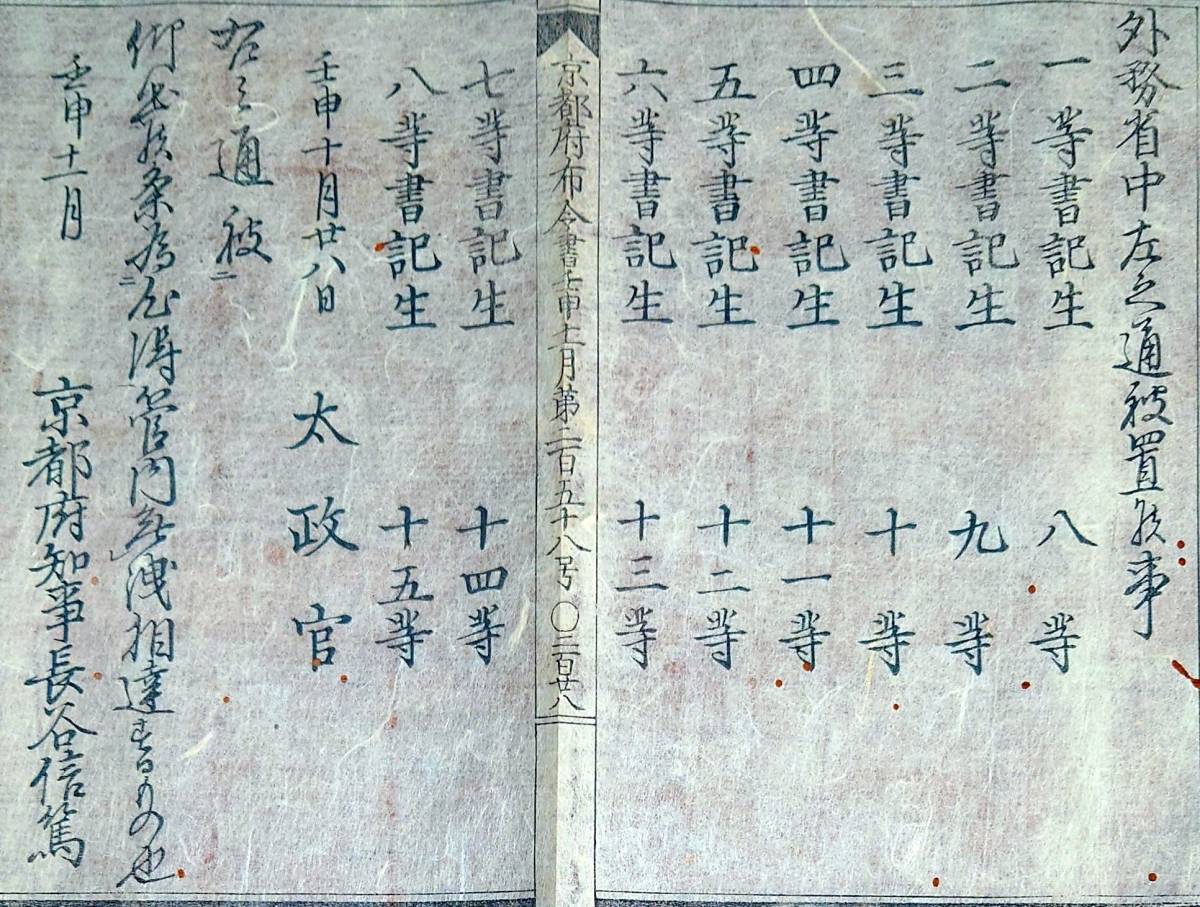 外務省中左之通被置候事
一等書記生 八等
二等書記生 九等
三等書記生 十等
四等書記生 十一等
五等書記生 十二等
六等書記生 十三等
京都府布令書壬申十一月第二百五十八号〇二百廿八
七等書記生 十四等
八等書記生 十五等
壬申十月廿八日 太政官
右之通被ニ
仰出候条為ニ心得管内無洩相達するもの也
壬申十一月 京都府知事長谷信篤